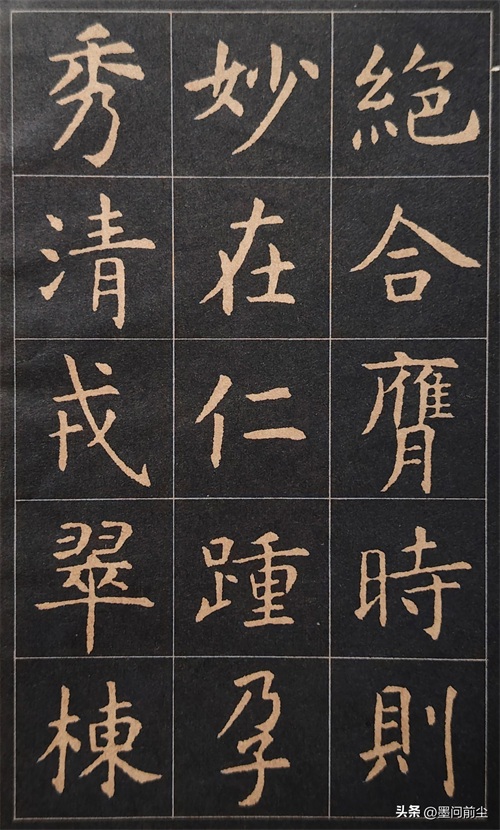 絕合膺時則
妙在仁踵孕
秀清戎翠棟
头条@墨问前尘